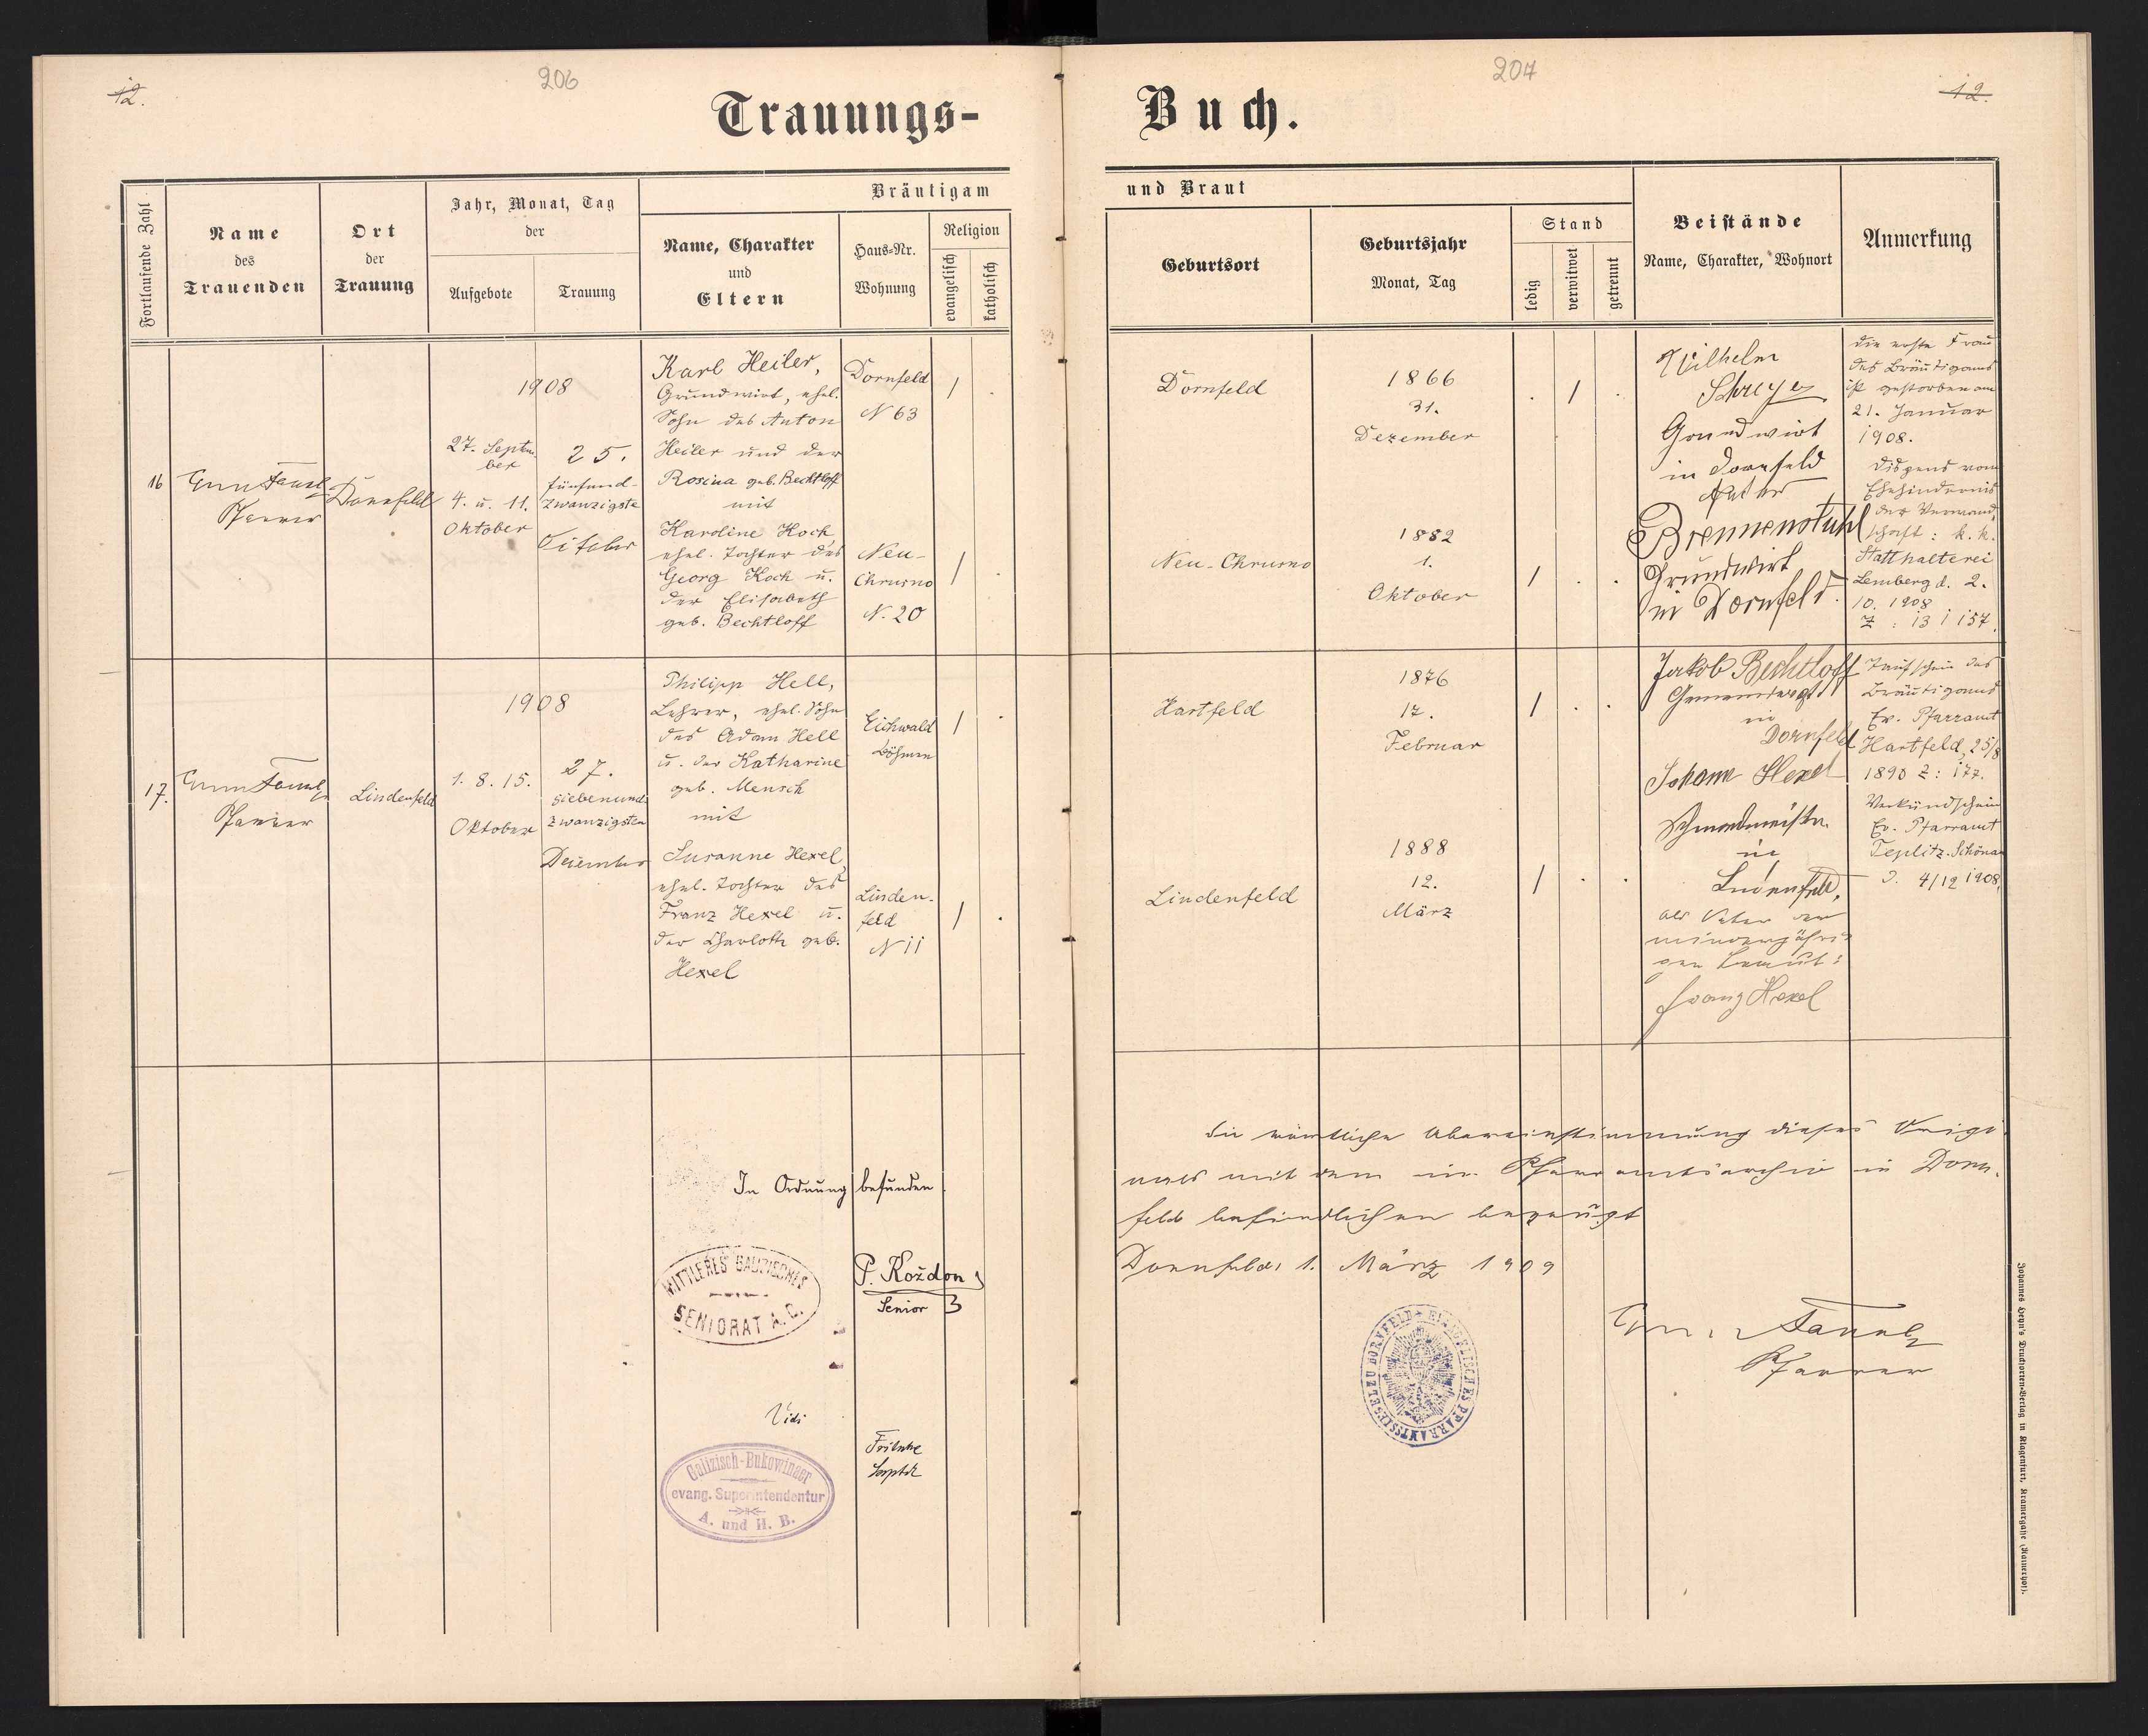 206
12.
Trauungs-
Fortlaufende Zahl
Name
des
Trauenden
Ort
der
Trauung
Jahr, Monat, Tag
der
Aufgebote
Trauung
Bräutigam
Name, Charakter
und
Eltern
Haus-Nr.
Wohnung
Religion
evangelisch
katholisch
16
Pfarrer
Dornfeld
1908
27. Septem-
ber
4. u. 11.
Oktober
25.
fünfund-
zwanzigste
October
Karl Heiler,
Grundwirt, ehel.
Sohn des Anton
Heiler und der
Rosina geb. Bechtloff
mit
Karoline Koch,
ehel. Tochter des
Georg Koch u.
der Elisabeth
geb. Bechtloff
Dornfeld
N 63
Neu-
Chrusno
N. 20
17.
Pfarrer
Lindenfeld
1908
1. 8. 15.
Oktober
27.
siebenund-
zwanzigsten
Dezember
Philipp Hell,
Lehrer, ehel. Sohn
des Adam Hell
u. der Katharine
geb. Mensch
mit
Susanne Hexel,
ehel. Tochter des
Franz Hexel u.
der Charlotte geb.
Hexel
Eichwald
Böhmen
Linden-
feld
N 11
In Ordnung befunden
MITTLERES GALIZISCHES
SENIORAT A. C.
P. Koždon,
Senior
Vidi
Galizisch-Bukowinaer
evang. Superintendentur
A. und H. B.
207
12.
Buch.
und Braut
Geburtsort
Geburtsjahr
Monat, Tag
Stand
ledig
verwitwet
getrennt
Beistände
Name, Charakter, Wohnort
Anmerkung
Dornfeld
1866
31.
Dezember
Neu-Chrusno
1882
1.
Oktober
Wilhelm
Schreyer
Grundwirt
in Dornfeld
Brennenstuhl
Grundwirt
in Dornfeld.
Die erste Frau
des Bräutigams
ist gestorben am
21. Januar
1908.
Dispens vom
Ehehindernis
der Verwand-
schaft: k. k.
Statthalterei
Lemberg d. 2.
10. 1908
Z: 131157.
Hartfeld
1876
17.
Februar
Lindenfeld
1888
12.
März
Jakob Bechtloff
in
Dornfeld
Johann Hexel
Schmiedmeister
in
Lindenfeld,
als Vater der
minderjähri-
gen Braut:
Franz Hexel
Taufschein des
Bräutigams
Ev. Pfarramt
Hartfeld, 25/8
1890 Z: 177.
Verkündschein
Ev. Pfarramt
Teplitz-Schönau
d. 4/12 1908.
Die wörtliche Übereinstimmung dieses Origi-
nals mit dem im Pfarramtsarchiv in Dorn-
feld befindlichen bezeugt
Dornfeld, 1. März 1909
Pfarrer
EVANGELISCHES PFARRAMTSSIEGEL ZU DORNFELD
Johannes Heyn's Drucksorten-Verlag in Klagenfurt, Kramergasse (Rainerhof).